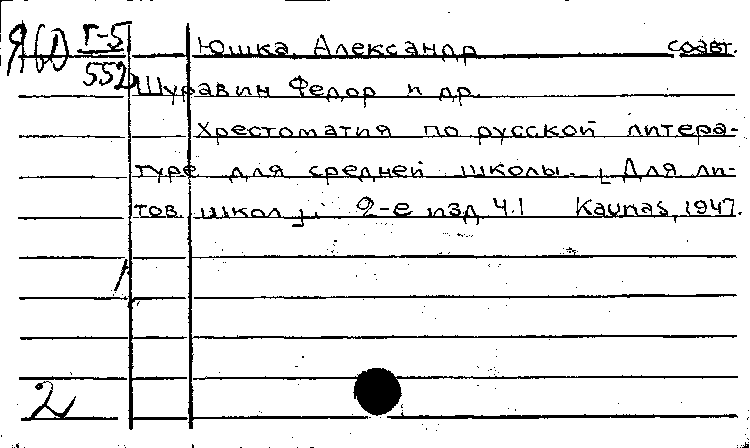 Я(6) Г-5 Юшка, Александр соавт.
552 Шуравин Федор и др.
Хрестоматия по русской литера-
туре для средней школы. [Для ли-
тов. школ]. 2-е изд. Ч.1 Kaunas, 1947.
1
2